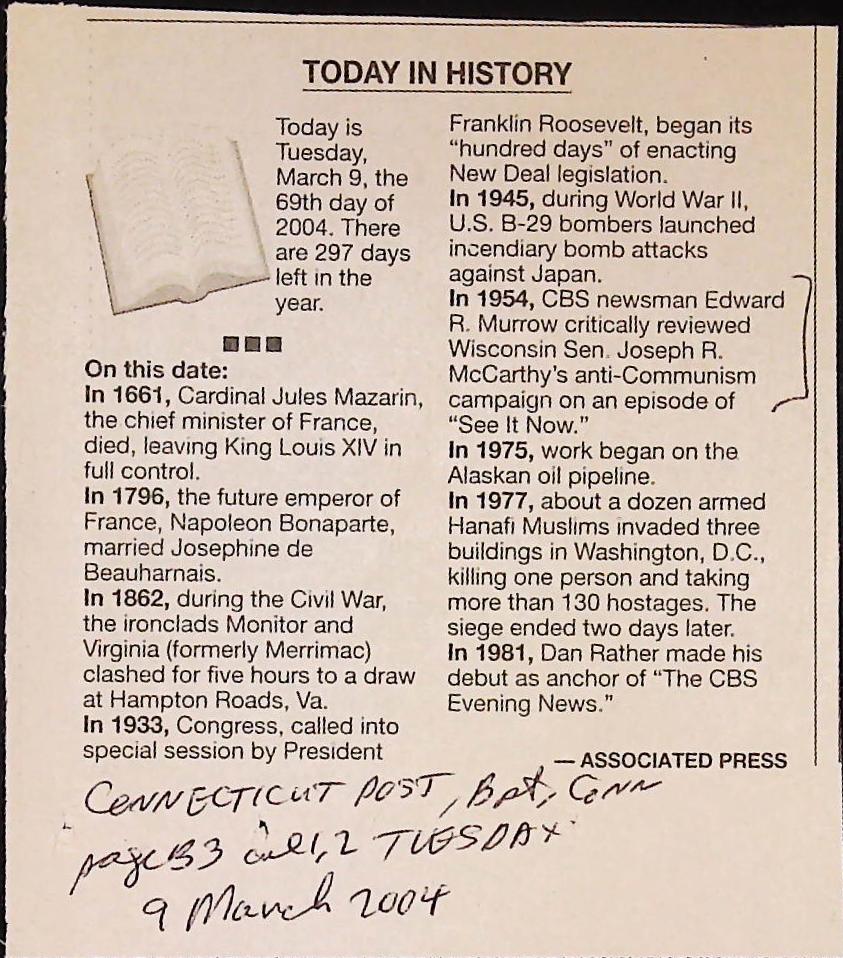 TODAY IN HISTORY
Today is
Tuesday,
March 9, the
69th day of
2004. There
are 297 days
left in the
year.
On this date:
In 1661, Cardinal Jules Mazarin,
the chief minister of France,
died, leaving King Louis XIV in
full control.
In 1796, the future emperor of
France, Napoleon Bonaparte,
married Josephine de
Beauharnais.
In 1862, during the Civil War,
the ironclads Monitor and
Virginia (formerly Merrimac)
clashed for five hours to a draw
at Hampton Roads, Va.
In 1933, Congress, called into
special session by President
Franklin Roosevelt, began its
“hundred days” of enacting
New Deal legislation.
In 1945, during World War II,
U.S. B-29 bombers launched
incendiary bomb attacks
against Japan.
In 1954, CBS newsman Edward
R. Murrow critically reviewed
Wisconsin Sen. Joseph R.
McCarthy’s anti-Communism
campaign on an episode of
“See It Now.”
In 1975, work began on the
Alaskan oil pipeline.
In 1977, about a dozen armed
Hanafi Muslims invaded three
buildings in Washington, D.C.,
killing one person and taking
more than 130 hostages. The
siege ended two days later.
In 1981, Dan Rather made his
debut as anchor of “The CBS
Evening News.”
— ASSOCIATED PRESS
CONNECTICUT POST, Bpt, Conn
page B3 col 1,2 TUESDAY
9 March 2004